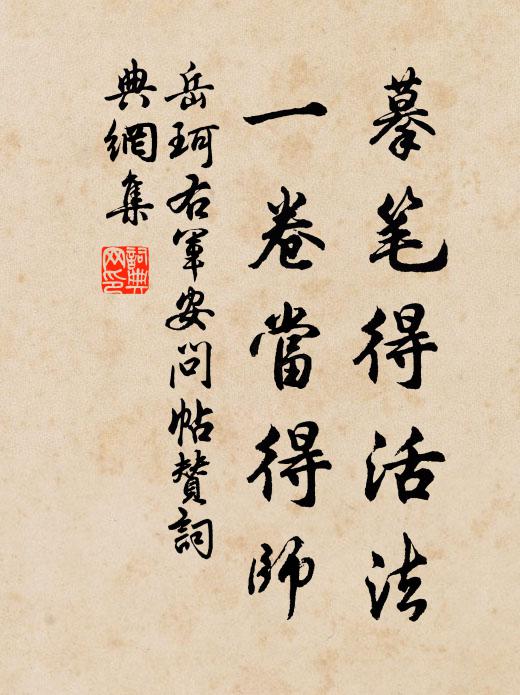 摹笔得活法
一卷當得師
岳珂右軍安問帖赞詞
典網集
詞典
网印